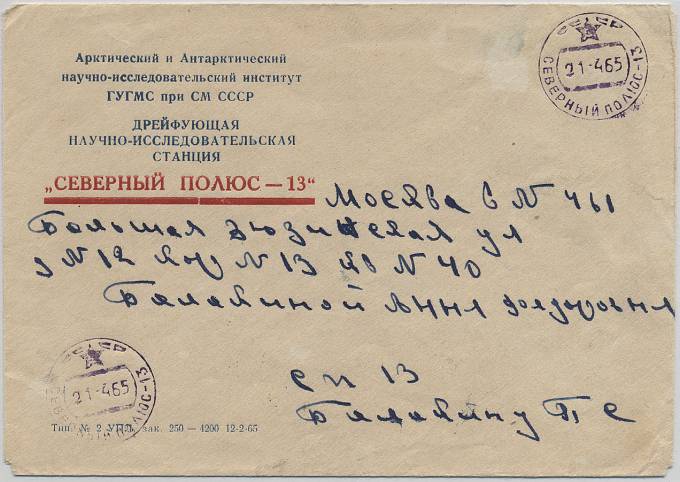 Арктический и Антарктический
научно-исследовательский институт
ГУГМС при СМ СССР
ДРЕЙФУЮЩАЯ
НАУЧНО-ИССЛЕДОВАТЕЛЬСКАЯ
СТАНЦИЯ
„СЕВЕРНЫЙ ПОЛЮС — 13“
21-465
СЕВЕРНЫЙ ПОЛЮС-13
Москва В N 461
Большая Зюзинская ул
д N 12 кор N 13 кв N 40
Балакиной
СП 13
Балакину П С
21-465
СЕВЕРНЫЙ ПОЛЮС-13
Тип. № 2 УПЛ. зак. 250 — 4200 12-2-65